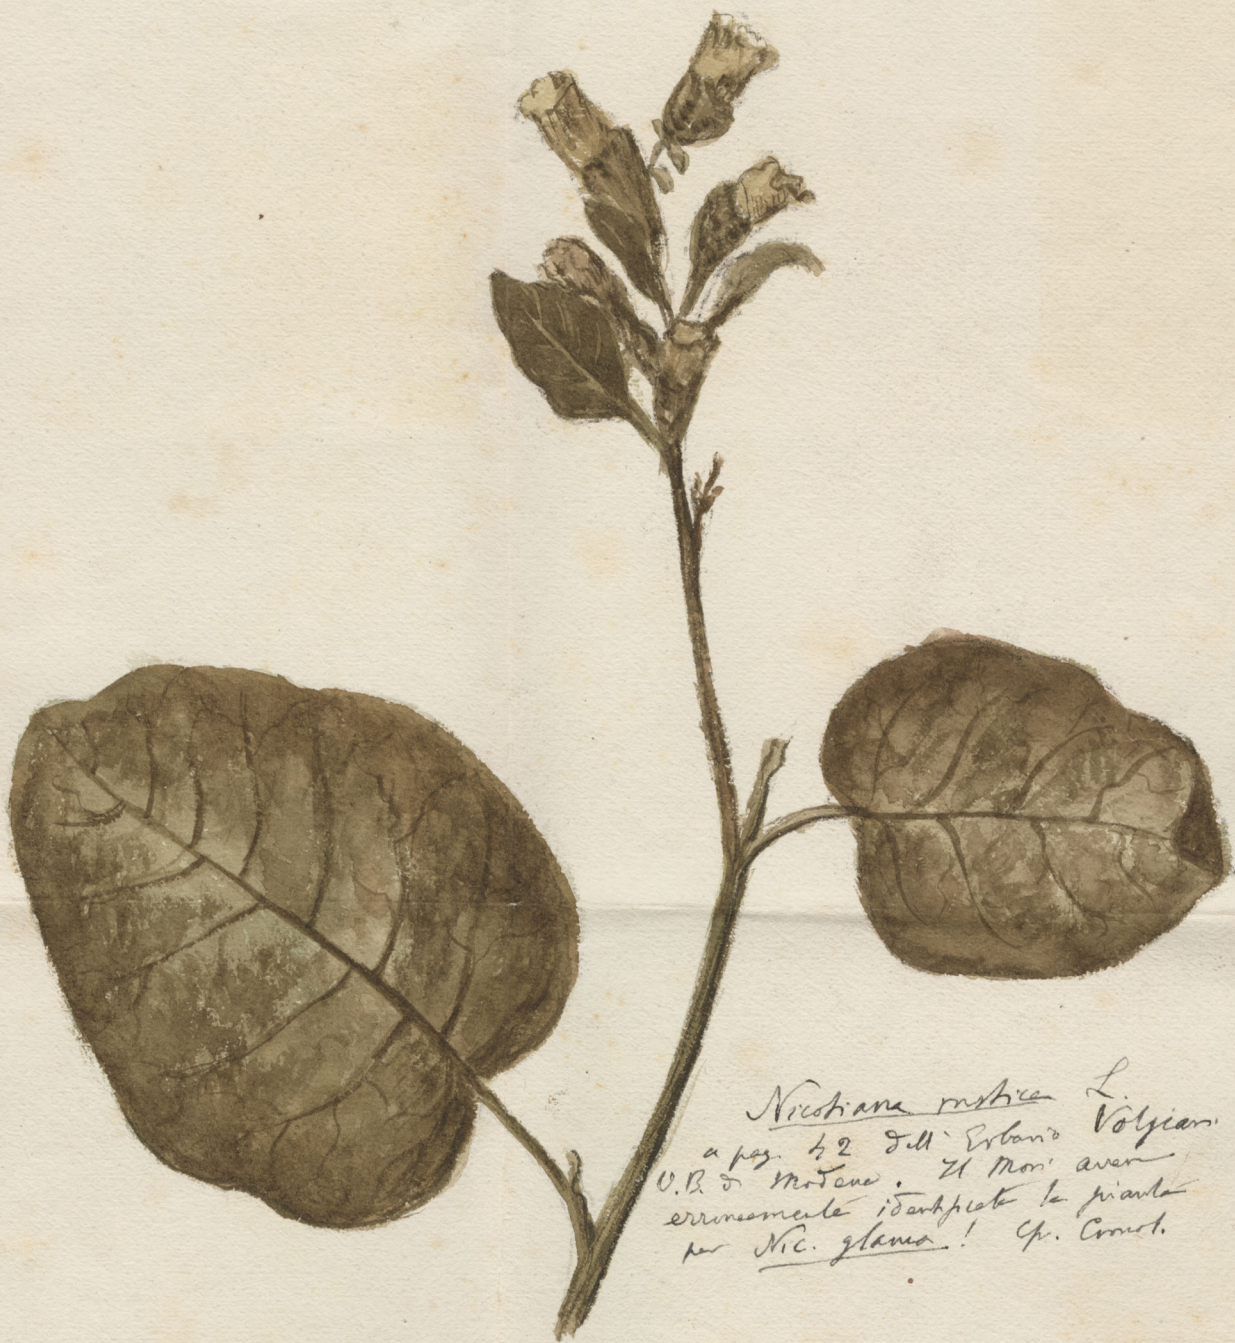 Nicotiana rustica L.
a pag. 42 dell' Erbario Volgian.
O.B. di Modena. Il Mori aveva
erroneamente identificata la pianta
per Nic. glauca! Cfr.